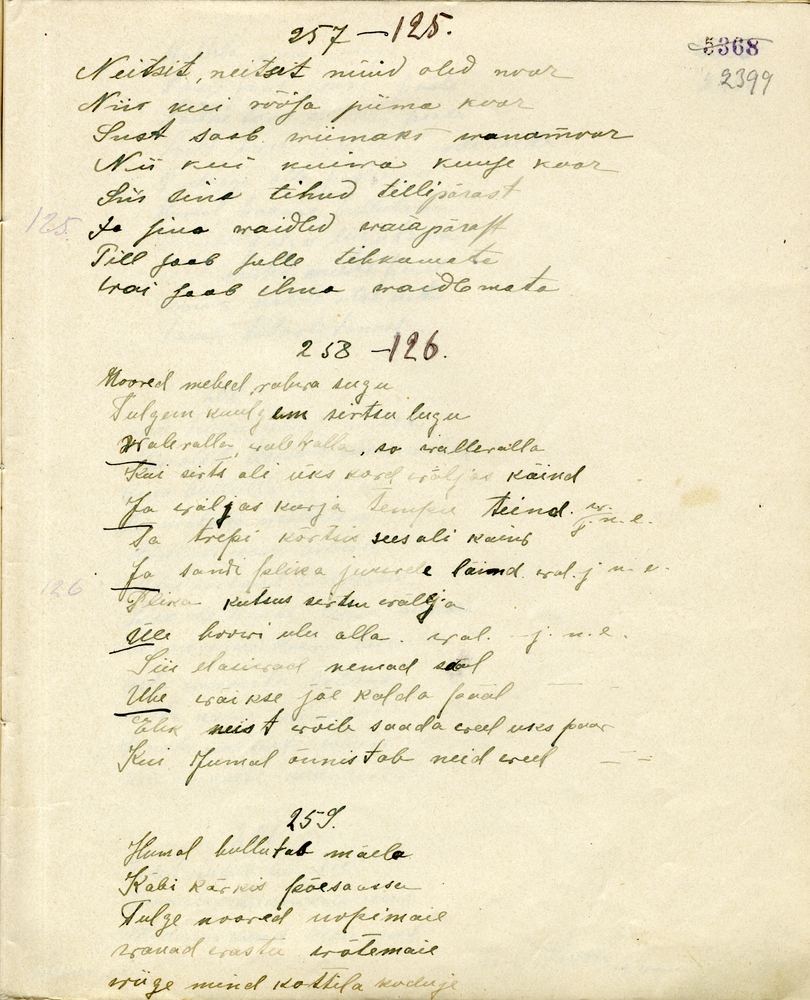 257 – 125.
5368
2399
Neitsit, neitsit nüüd oled noor
Niis kui rõõsa piima koor
Sust saab wiimaks wanamoor
Nii kui kuiwa kuuse koor
Siis sina tihud tillipärast
125
Ja sina waidled waiapärast
Till jaab sulle tihkumata
wai jaab ilma waidlemata
258 – 126.
Noored mehed, rahwa sugu
Tulgem kuulgem sirtsu lugu
walleralla, walleralla, so walleralla
Kui sirts oli üks kord wäljas käind
Ja wäljas kurja tempu teind. w. j. n. e.
Ta trepi kõrtsis sees oli käind
Ja sandi plika juurde läind. wal. j. n. e.
126
Plika kutsus sirtsu wälja
Üle hoowi ulu alla. wal. j. n. e.
Siis elasiwad nemad sääl
Ühe waikse jõe kalda pääl
Ehk neist wõib saada weel uks paar
Kui Jumal õnnistab neid weel
259.
Humal hullutab mäella
Käbi kärkis põesaassa
Tulge noored nopimaie
wanad wastu wõtemaie
wiige mind kottila koduje